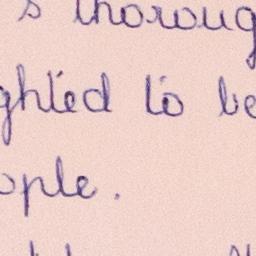 s thoroug
ghted to be
ople.